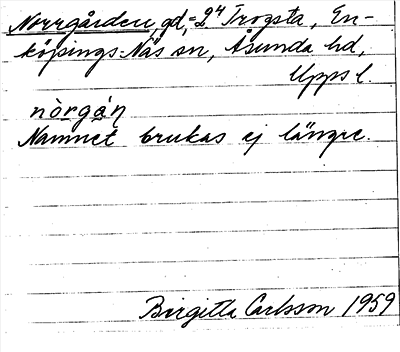 Norrgården, gd, = 2⁴ Trogsta, En-
köpings-Näs sn, Åsunda hd,
Upps l.
nòrgá̱ṇ
Namnet brukas ej längre.
Birgitta Carlsson 1959